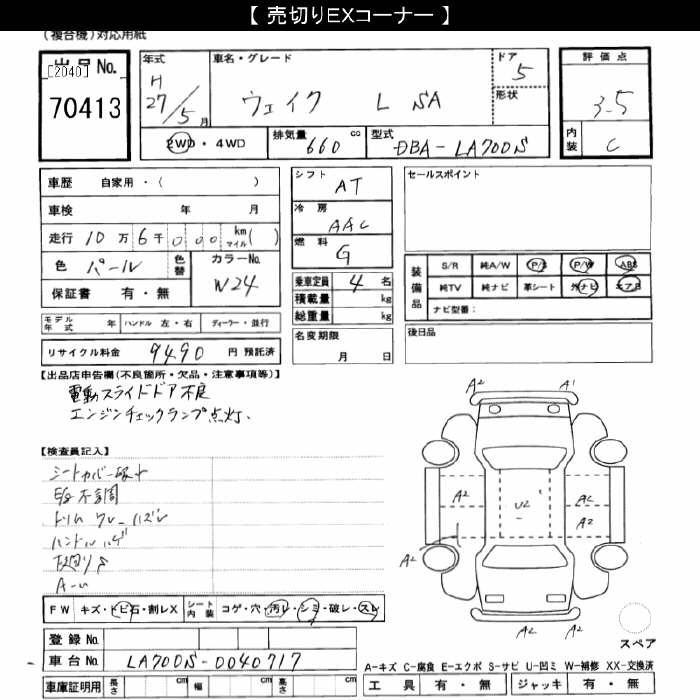 【 売切りEXコーナー 】
(複合機)対応用紙
出品No. [2040]
70413
年式 H 27/5月
車名・グレード ウェイク L SA
ドア 5
形状
評価点 3.5
内装 C
2WD・4WD
排気量 660 cc
型式 DBA-LA700S
車歴 自家用・( )
車検 年 月
走行 10万6千000 km マイル( )
色 パール 色替 カラーNo. W24
保証書 有・無
シフト AT
冷房 AAC
燃料 G
乗車定員 4 名
積載量 kg
総重量 kg
名変期限 月 日
セールスポイント
装備品 S/R 純A/W P/S P/W ABS
純TV 純ナビ 革シート 外ナビ エアB
ナビ型番:
後日品
モデル年式 年 ハンドル 左・右 ディーラー・並行
リサイクル料金 9490 円 預託済
【出品店申告欄(不良箇所・欠品・注意事項等)】
電動スライドドア不良
エンジンチェックランプ点灯.
【検査員記入】
シートカバー破
E/g不調
トリム ワレ ハズレ
ハンドルハゲ
下廻りS
FW キズ・トビ石・割レX シート内装 コゲ・穴・汚レ・シミ・破レ・スレ
登録No.
車台No. LA700S-0040717
車庫証明用 長さ cm 幅 cm 高さ cm
A2 A1
A2 U2 A2
A2
A2
A2 A2
スペア
A-キズ C-腐食 E-エクボ S-サビ U-凹ミ W-補修 XX-交換済
工具 有・無 ジャッキ 有・無